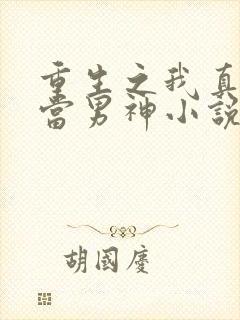 重生之我真
當男神小說
胡國慶